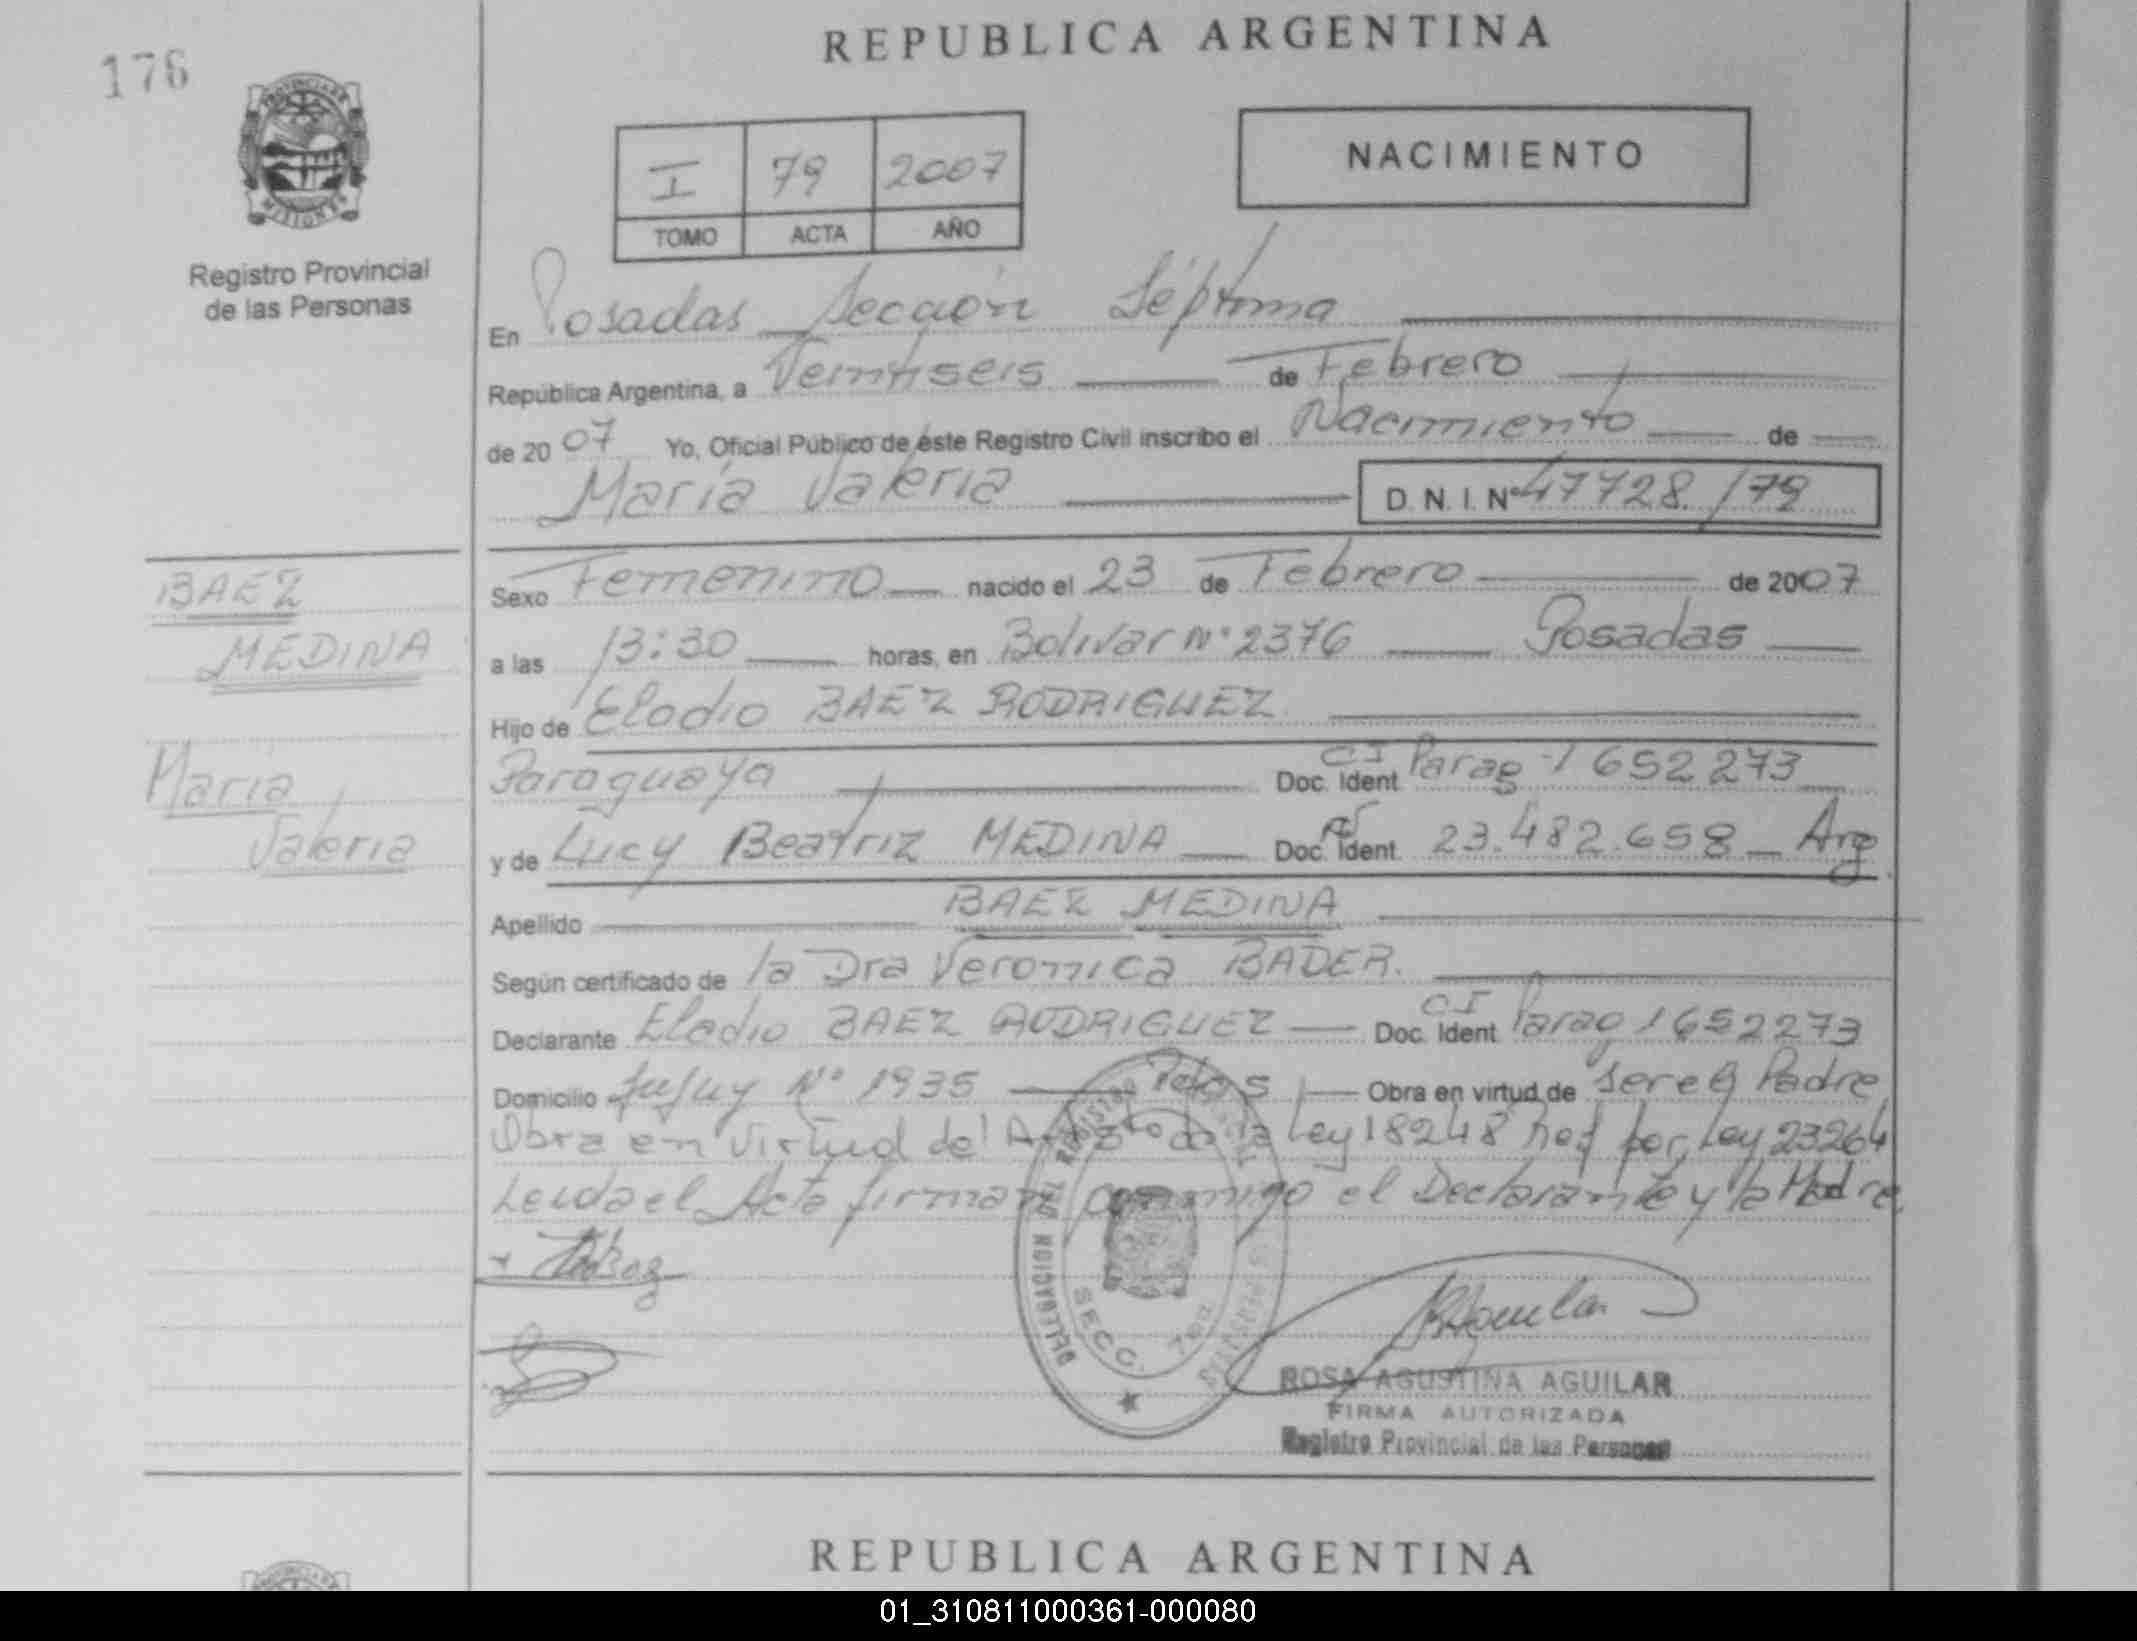 REPUBLICA ARGENTINA
176
PROVINCIA DE
MISIONES
NACIMIENTO
I 79 2007
TOMO ACTA AÑO
Registro Provincial
de las Personas
En Posadas Sección Séptima
República Argentina, a Veintiseis de Febrero
de 2007 Yo, Oficial Público de éste Registro Civil inscribo el Nacimiento de
María Valeria D.N.I. Nº 47728/79
BAEZ
MEDINA
María
Valeria
Sexo Femenino nacido el 23 de Febrero de 2007
a las 13:30 horas, en Bolivar Nº 2376 Posadas
Hijo de Eladio BAEZ RODRIGUEZ
Paraguaya Doc. Ident. CI Parag 1652273
y de Lucy Beatriz MEDINA Doc. Ident. 23.482.658 Arg.
Apellido BAEZ MEDINA
Según certificado de la Dra Veronica BADER.
Declarante Eladio BAEZ RODRIGUEZ Doc. Ident CI Parag 1652273
Domicilio Jujuy Nº 1935 Pdas Obra en virtud de ser el Padre
Obra en virtud del de la Ley 18248 por Ley 23264
Leida el Acta firman conmigo el Declarante y la Madre.
DELEGACION DEL REGISTRO
SECC. 7ma
ROSA AGUSTINA AGUILAR
FIRMA AUTORIZADA
Registro Provincial de las Personas
REPUBLICA ARGENTINA
01_310811000361-000080